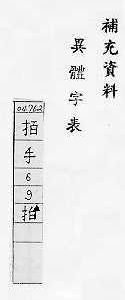 補充資料
異體字表
04762
手
6
9
拍